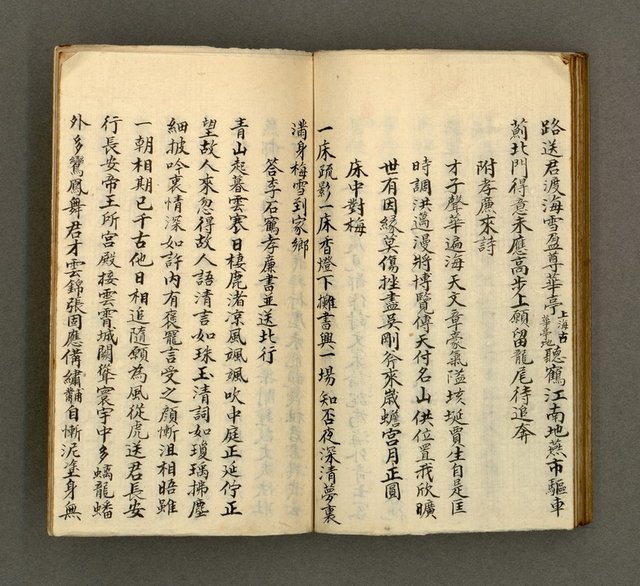 路送君渡海雪盈尊華亭上海古華亭地聽鶴江南地燕市驅車
薊北門得意未應高步上願留龍尾待追奔
附孝廉來詩
才子聲華遍海天文章豪氣隘垓埏賈生自是匡
時調洪邁漫將博覽傳天付名山供位置我欣曠
世有因緣莫傷挫盡吳剛斧來歲蟾宮月正圓
床中對梅
一床疏影一床香燈下攤書興一場知否夜深清夢裏
滿身梅雪到家鄉
答李石鶴孝廉書並送北行
青山起暮雲寒日棲鹿渚涼風颯颯吹中庭正延佇正
望故人來忽得故人語清言如珠玉清詞如瓊瑀揣塵
細披吟衷情深如許內有褒寵言受之顏慚沮相晤雖
一朝相期已千古他日相追隨願為風從虎送君長安
行長安帝王所宮殿棲雲霄城闕聳寰宇中多螭龍蟠
外多鸞鳳舞君才雲錦張固應備繡黼自慚泥塗身無